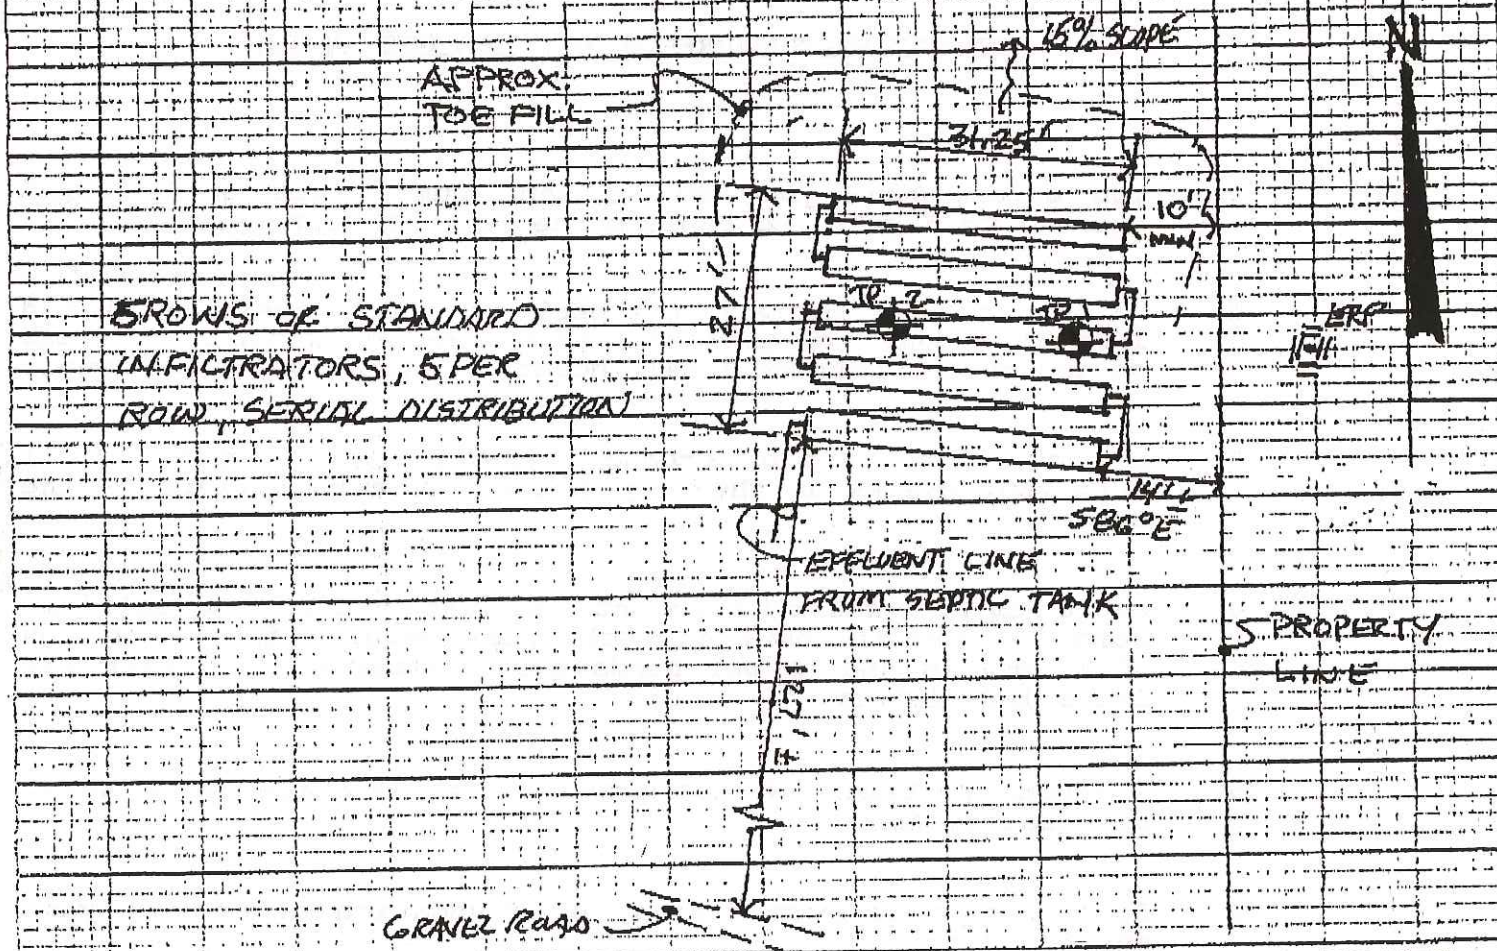 15% SLOPE
N
APPROX.
TOE FILL
31.25'
10'
MIN
27'
TP 2
TP 1
ERP
5 ROWS OF STANDARD
INFILTRATORS, 5 PER
ROW, SERIAL DISTRIBUTION
14'±
S86°E
EFFLUENT LINE
FROM SEPTIC TANK
PROPERTY
LINE
127'±
GRAVEL ROAD